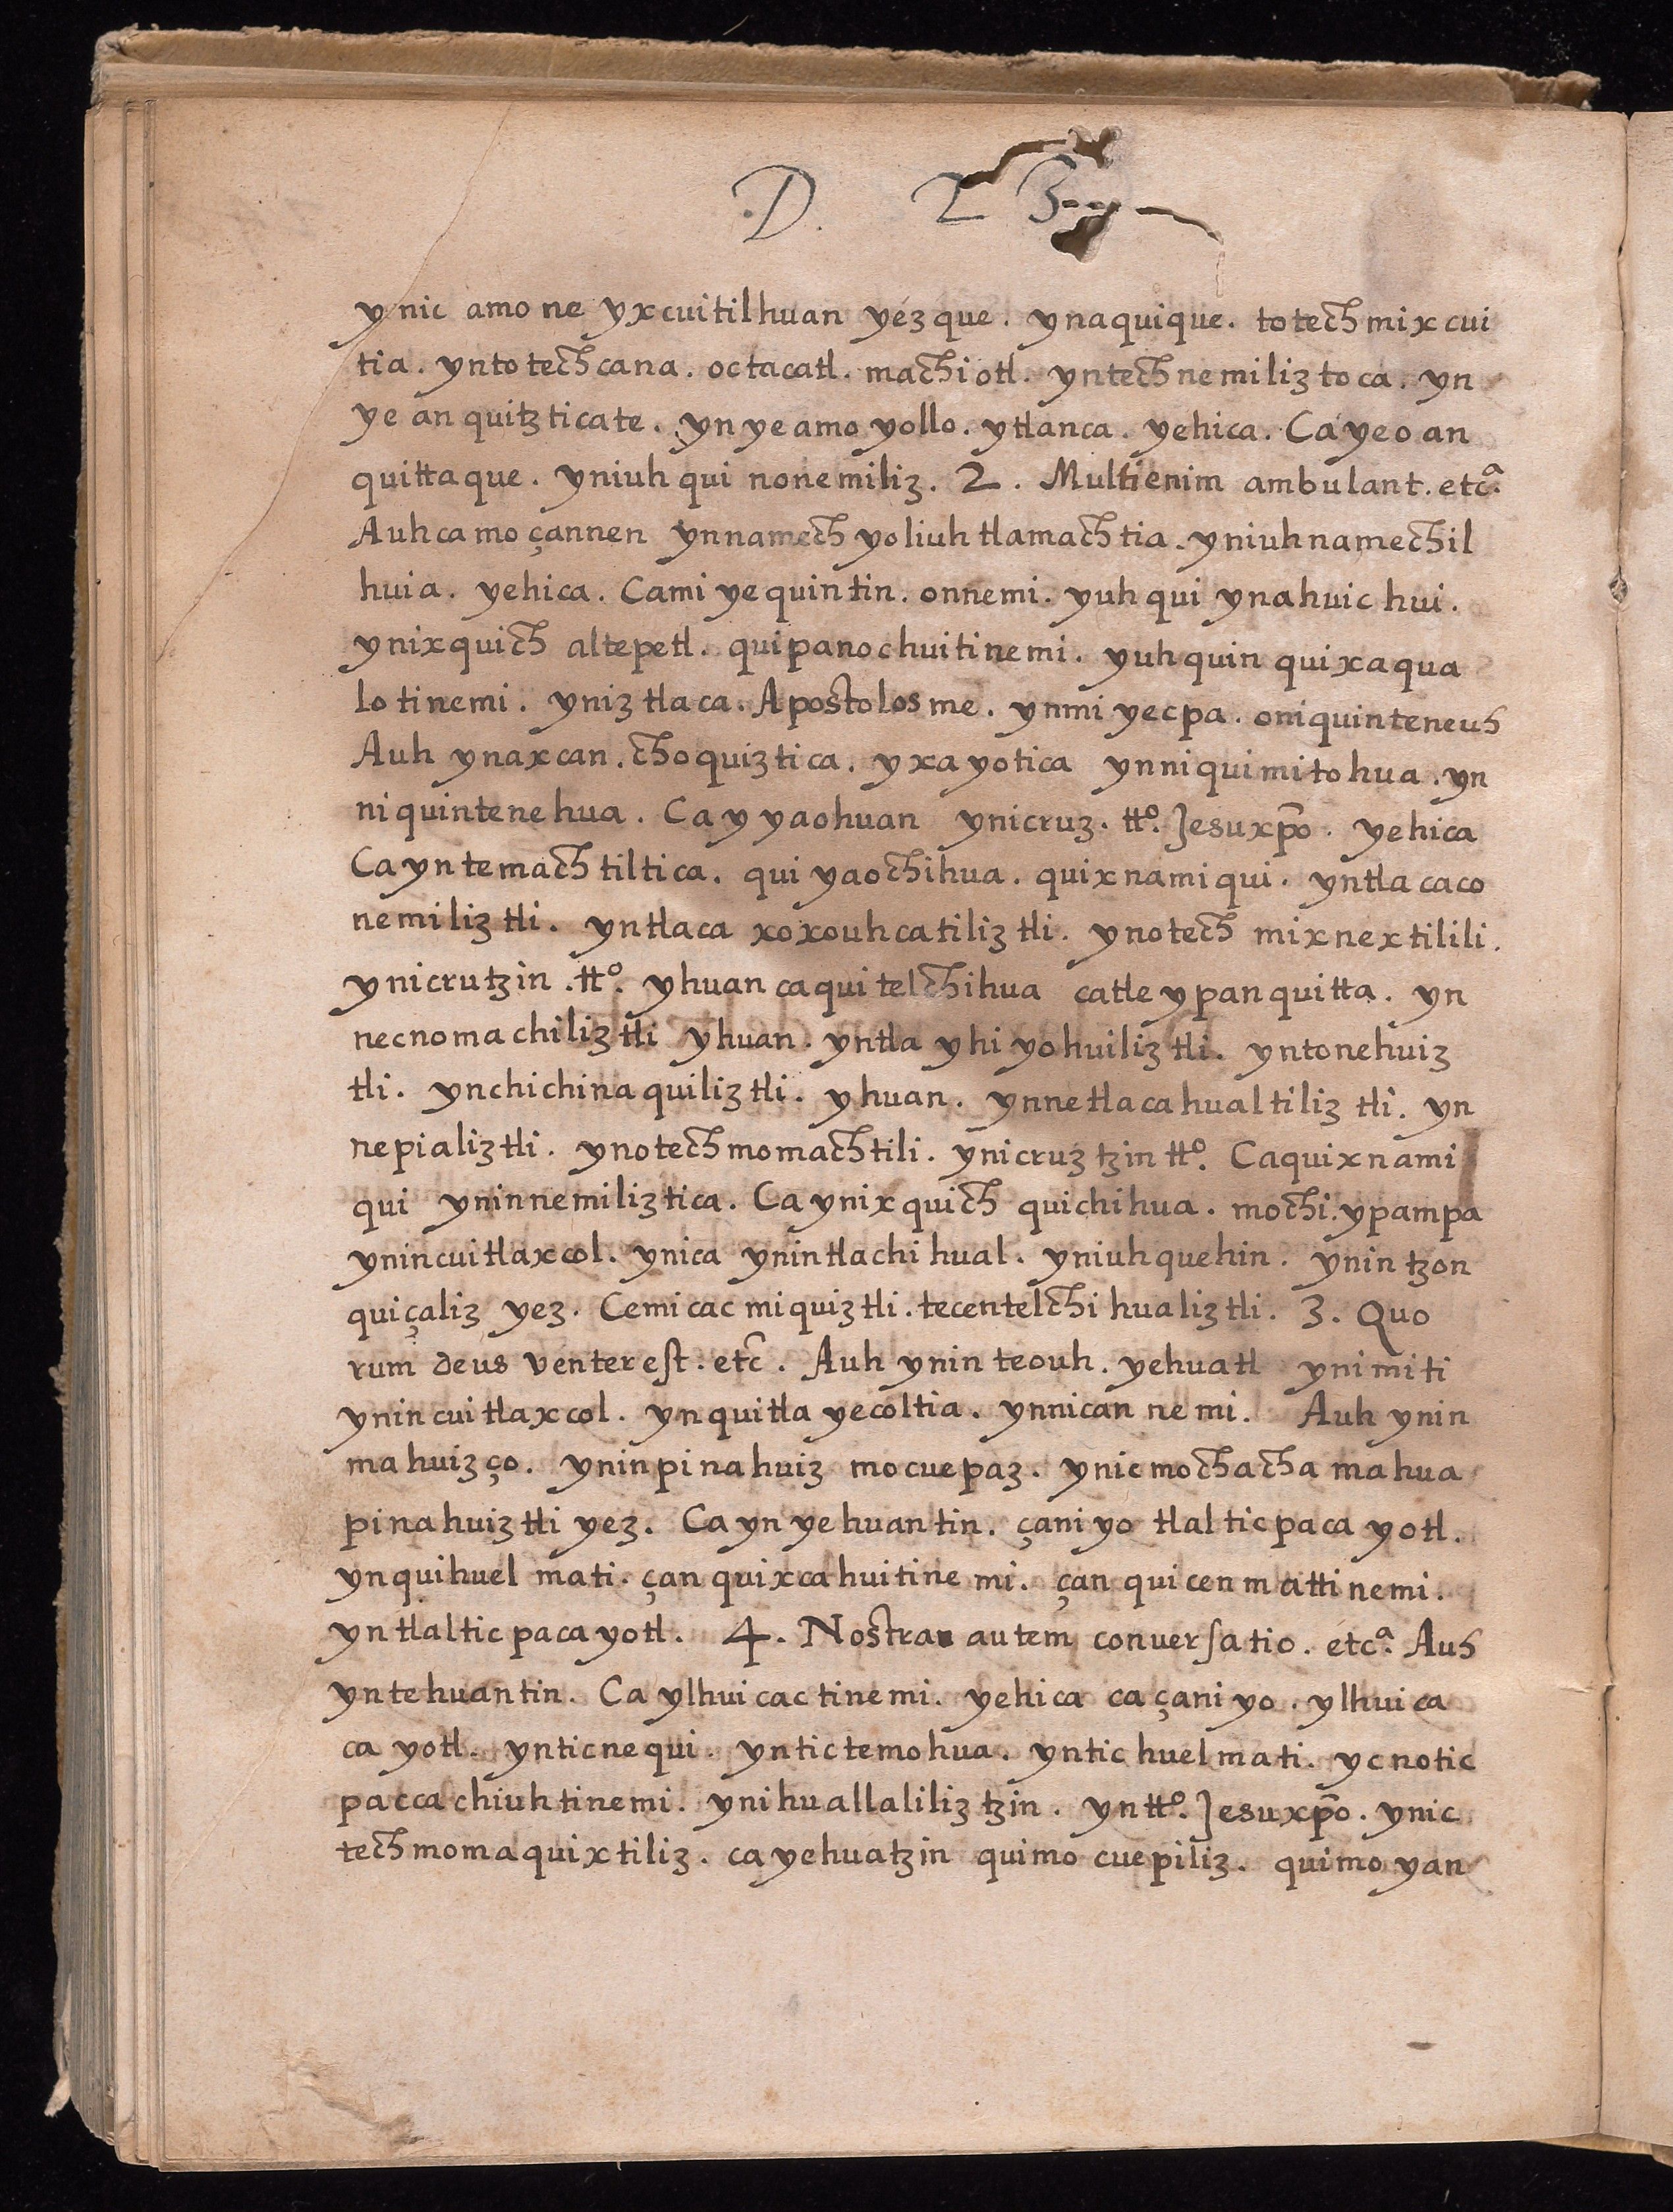 .D. 2 3
ynic amo ne yxcuitilhuan yézque. ynaquique. totech mixcui
tia. ynto techcana. octacatl. machiotl. yntechnemiliz toca. yn
ye an quitzticate. ynyeamo yollo. ytlanca. yehica. Ca yeo an
quittaque. yniuh qui nonemiliz. 2. Multienim ambulant. etcª.
Auhcamo çannen ynnamech yoliuh tlamachtia. yniuhnamechil
huia. yehica. Cami yequintin. onnemi. yuhqui ynahuic hui.
ynixquich altepetl. quipanochuitinemi. yuhquin quixaqua
lo tinemi. yniztlaca. Apostolosme. ynmi yecpa. oniquinteneuh
Auh ynaxcan. choquiztica. yxayotica ynniquimitohua. yn
niquintenehua. Ca y yaohuan ynicruz. ttº. Jesuxp̃o. yehica
Ca yntemachtiltica. qui yaochihua. quixnamiqui. yntlacaco
nemiliztli. yntlaca xoxouhcatiliztli. ynotech mixnextilili.
ynicrutzin. ttº. yhuan caquitelchihua catle ypanquitta. yn
necnomachiliztli yhuan. yntla yhiyohuiliztli. yntonehuiz
tli. ynchichinaquiliztli. yhuan. ynnetlacahualtiliztli. yn
nepializtli. ynotechmomachtili. ynicruztzin ttº. Caquixnami
qui yninnemiliztica. Ca ynixquich quichihua. mochi. ypampa
ynincuitlaxcol. ynica ynintlachihual. yniuhquehin. ynin tzon
quiçaliz yez. Cemicac miquiztli. tecentelchihualiztli. 3. Quo
rum deus venter est. etc̃. Auh ynin teouh. yehuatl ynimiti
ynincuitlaxcol. ynquitla yecoltia. ynnican nemi. Auh ynin
mahuizço. yninpinahuiz mocuepaz. ynic mochachamahua
pinahuiztli yez. Ca yn yehuantin. çaniyo tlalticpacayotl.
ynquihuel mati. çan quixcahuitinemi. çan quicenmattinemi.
yntlalticpacayotl. 4. Nostra autem conuersatio. etcª. Auh
yntehuantin. Ca ylhuicac tinemi. yehica ca çaniyo. ylhuica
cayotl. ynticnequi. yntictemohua. yntic huelmati. ycnotic
paccachiuhtinemi. ynihuallaliliztzin. ynttº. Jesuxp̃o. ynic
techmomaquixtiliz. ca yehuatzin quimo cuepiliz. quimoyan